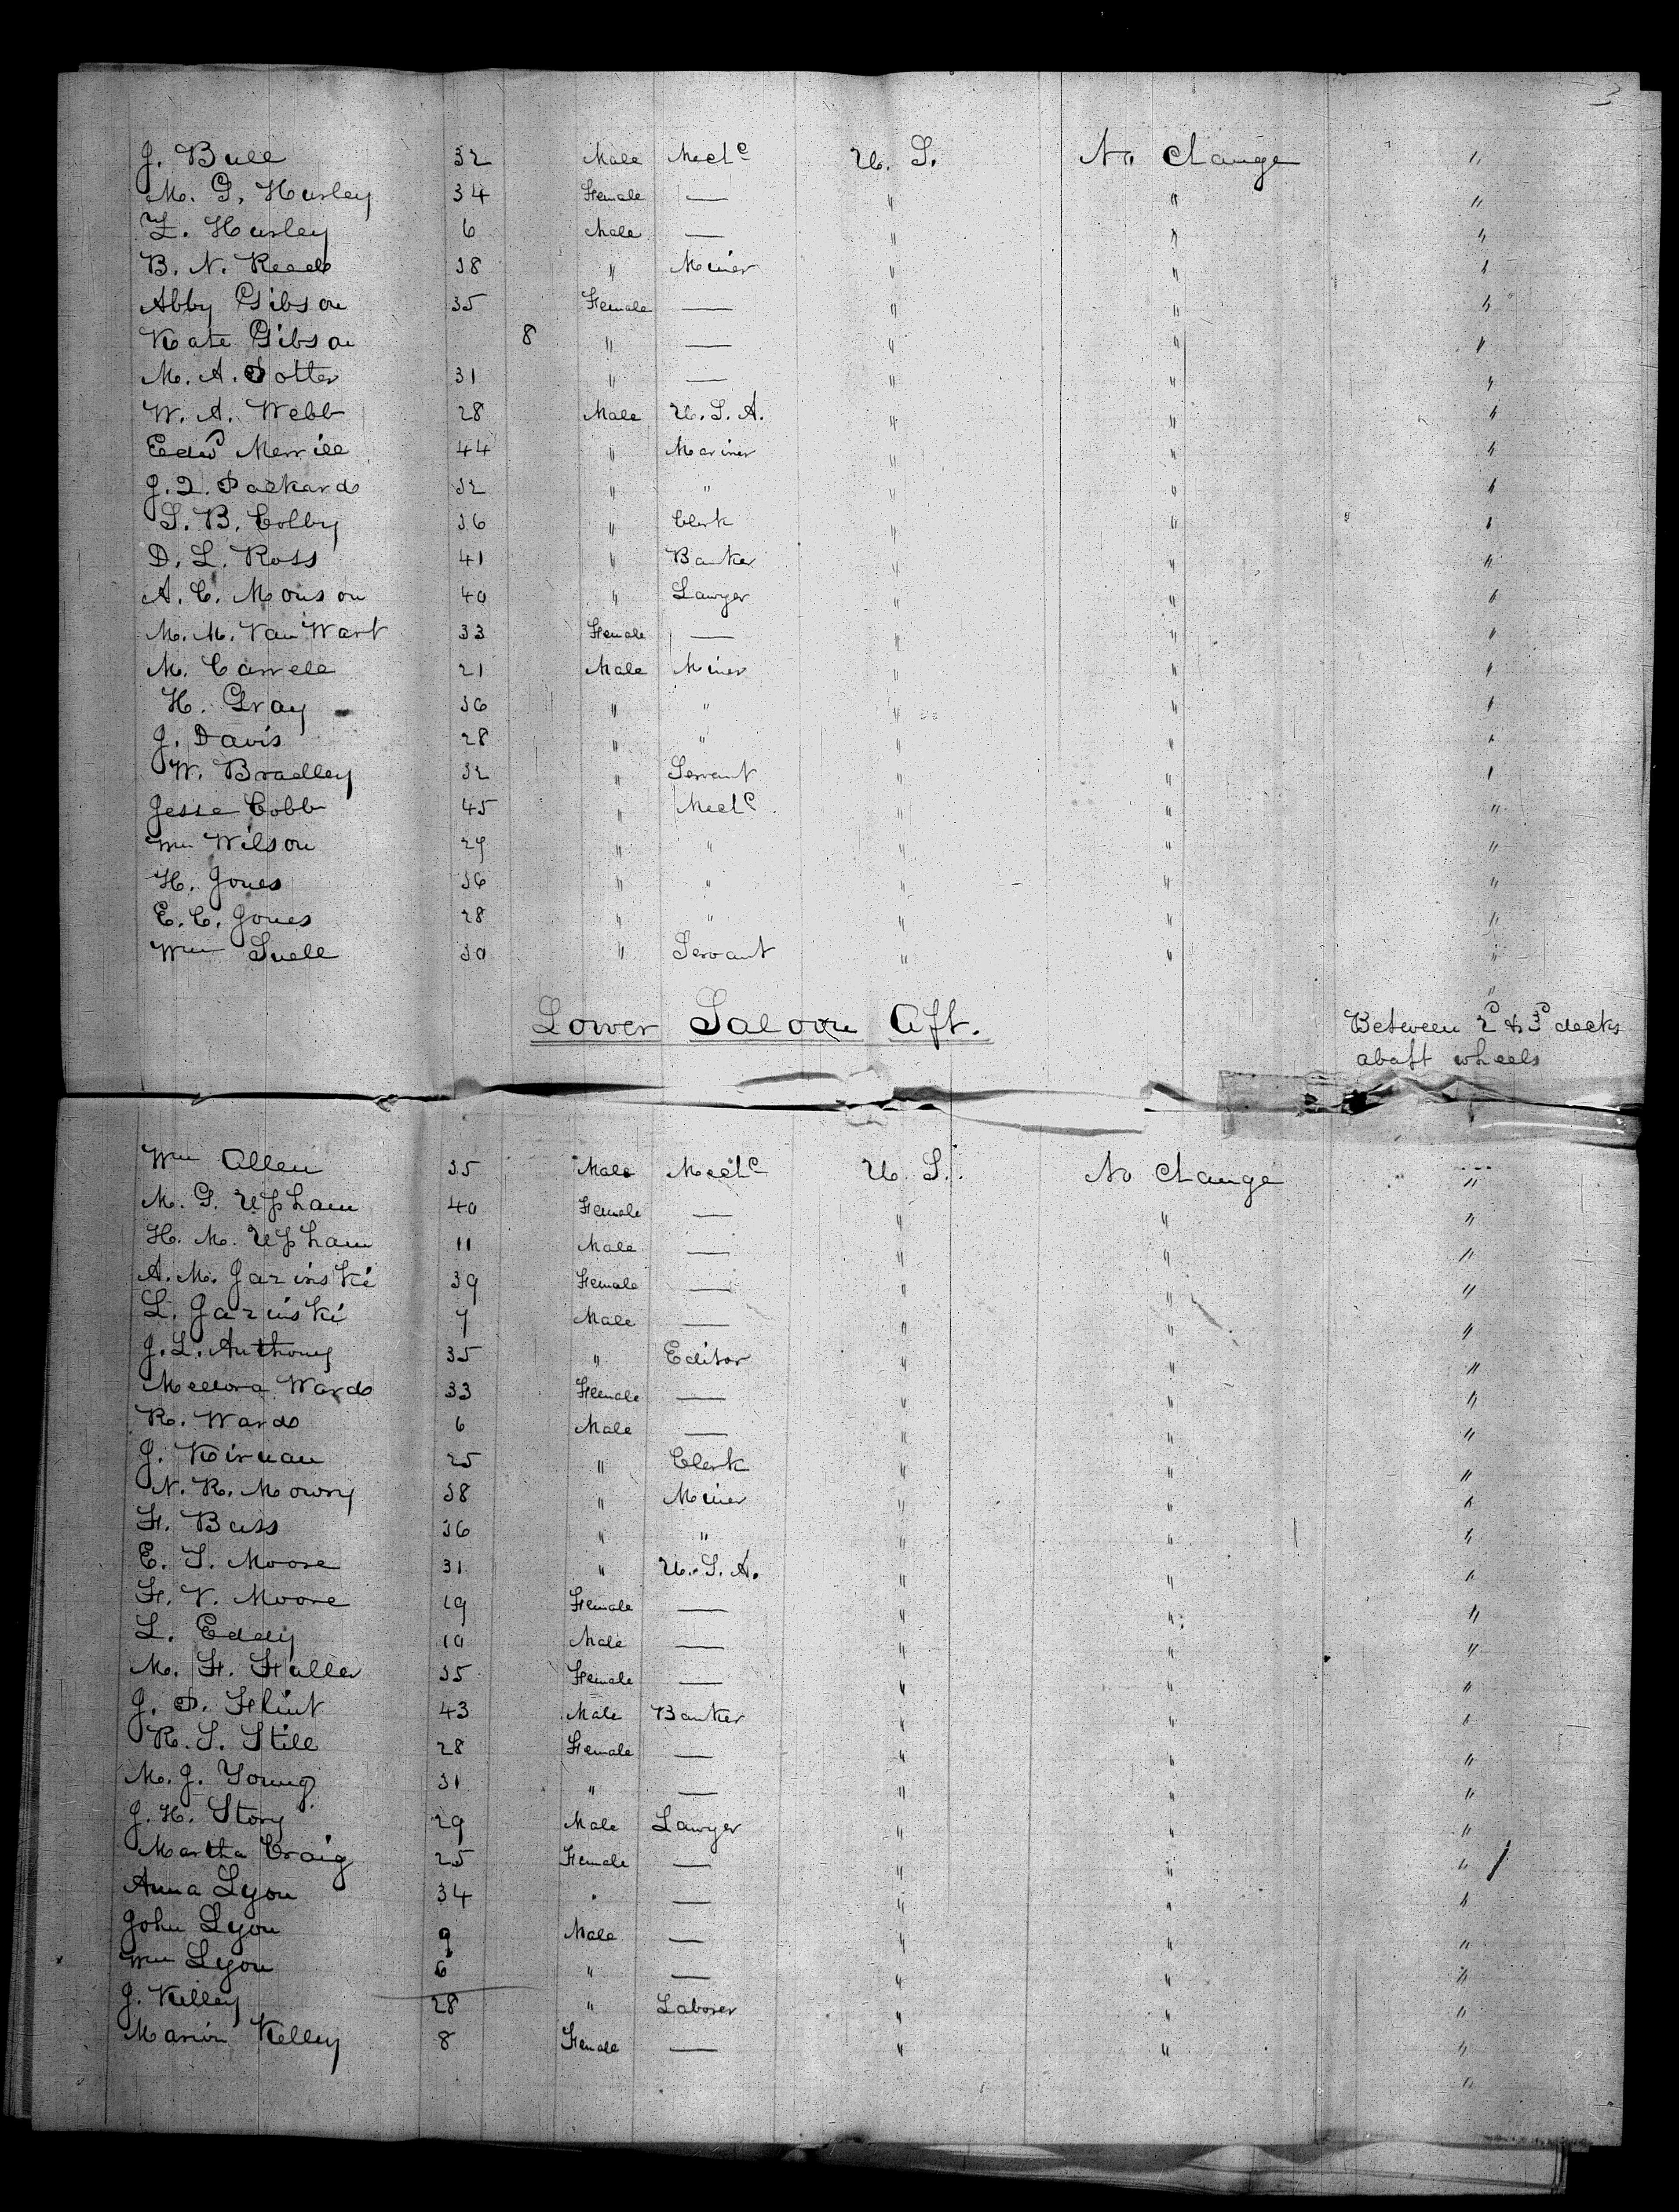 3
J. Bull 32 Male Mech^c U. S. No change "
M. G. Hurley 34 Female — " " "
Z. Hurley 6 Male — " " "
B. N. Reed 38 " Miner " " "
Abby Gibson 35 Female — " " "
Kate Gibson 8 " — " " "
M. A. Potter 31 " — " " "
W. A. Webb 28 Male U. S. A. " " "
Edw^d Merrill 44 " Mariner " " "
J. Q. Packard 32 " " " " "
S. B. Colby 36 " Clerk " " "
D. L. Ross 41 " Banker " " "
A. C. Monson 40 " Lawyer " " "
M. M. Van Wart 33 Female — " " "
M. Carrell 21 Male Miner " " "
H. Gray 36 " " " " "
J. Davis 28 " " " " "
W. Bradley 32 " Servant " " "
Jesse Cobb 45 " Mech^c " " "
Wm Wilson 29 " " " " "
H. Jones 36 " " " " "
E. C. Jones 28 " " " " "
Wm Snell 30 " Servant " " "
"
Lower Saloon Aft. Between 2^d & 3^d decks
abaft wheels
Wm Allen 35 Male Mech^c U. S. No change "
M. G. Upham 40 Female — " " "
H. M. Upham 11 Male — " " "
A. M. Jazinski 39 Female — " " "
L. Jazinski 7 Male — " " "
J. L. Anthony 35 " Editor " " "
Mellora Ward 33 Female — " " "
R. Ward 6 Male — " " "
J. Kirnan 25 " Clerk " " "
N. R. Mowry 38 " Miner " " "
F. Buss 36 " " " " "
E. S. Moore 31 " U. S. A. " " "
F. V. Moore 19 Female — " " "
L. Eddy 10 Male — " " "
M. F. Fuller 35 Female — " " "
J. P. Flint 43 Male Banker " " "
R. S. Still 28 Female — " " "
M. J. Young 31 " — " " "
J. H. Story 29 Male Lawyer " " "
Martha Craig 25 Female — " " "
Anna Lyon 34 " — " " "
John Lyon 9 Male — " " "
Wm Lyon 6 " — " " "
J. Kelley 28 " Laborer " " "
Marion Kelley 8 Female — " " "
"